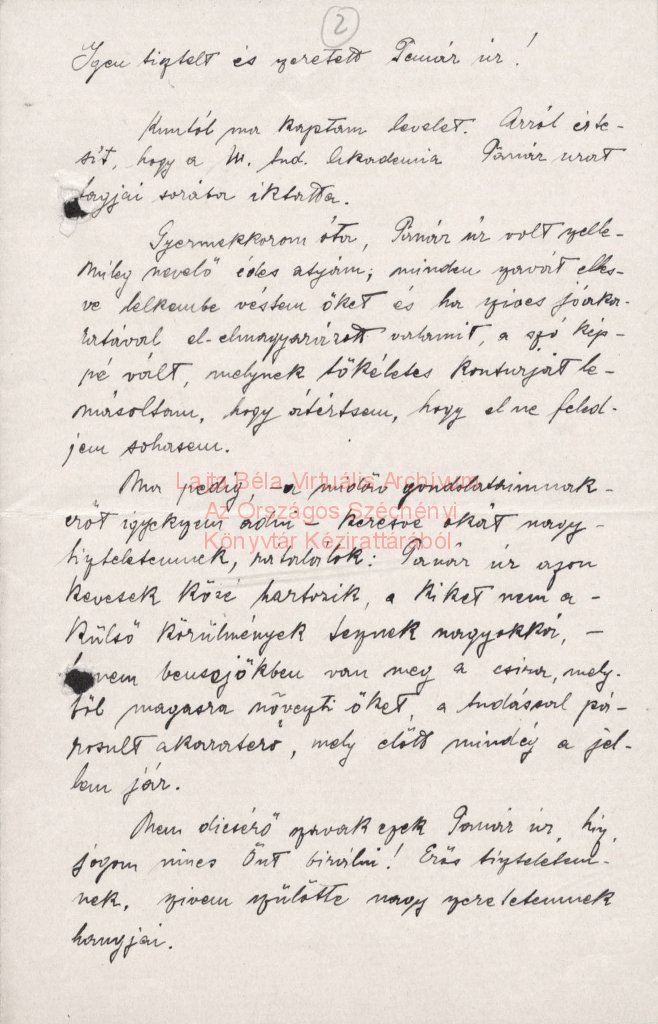 2
Igen tisztelt és szeretett Tanár úr!
Kuntól ma kaptam levelet. Arról érte-
sít, hogy a M. tud. Akadémia Tanár urat
tagjai sorába iktatta.
Gyermekkorom óta, Tanár úr volt szelle-
mileg nevelő édes atyám; minden szavát elles-
ve lelkembe véstem őket és ha szíves jóaka-
ratával el-elmagyarázott valamit, a szó kép-
pé vált, melynek tökéletes konturját le-
másoltam, hogy átértsem, hogy el ne feled-
jem sohasem.
Ma pedig, - a midőn gondolataimnak
erőt igyekszem adni - keresve okát nagy-
tiszteletemnek, rátalálok: Tanár úr azon
kevesek közé tartozik, a kiket nem a
külső körülmények tesznek nagyokká, -
hanem bensejökben van meg a csira, mely-
től magasra növeszti őket, a tudással pá-
rosult akaraterő, mely előtt mindég a jel-
lem jár.
Nem dicsérő szavak ezek Tanár úr, hisz
jogom nincs Önt birálni! Erős tiszteletem-
nek, szivem szülötte nagy szeretetemnek
hangjai.
Lajta Béla Virtuális Archívum
Az Országos Széchényi
Könyvtár Kézirattárából